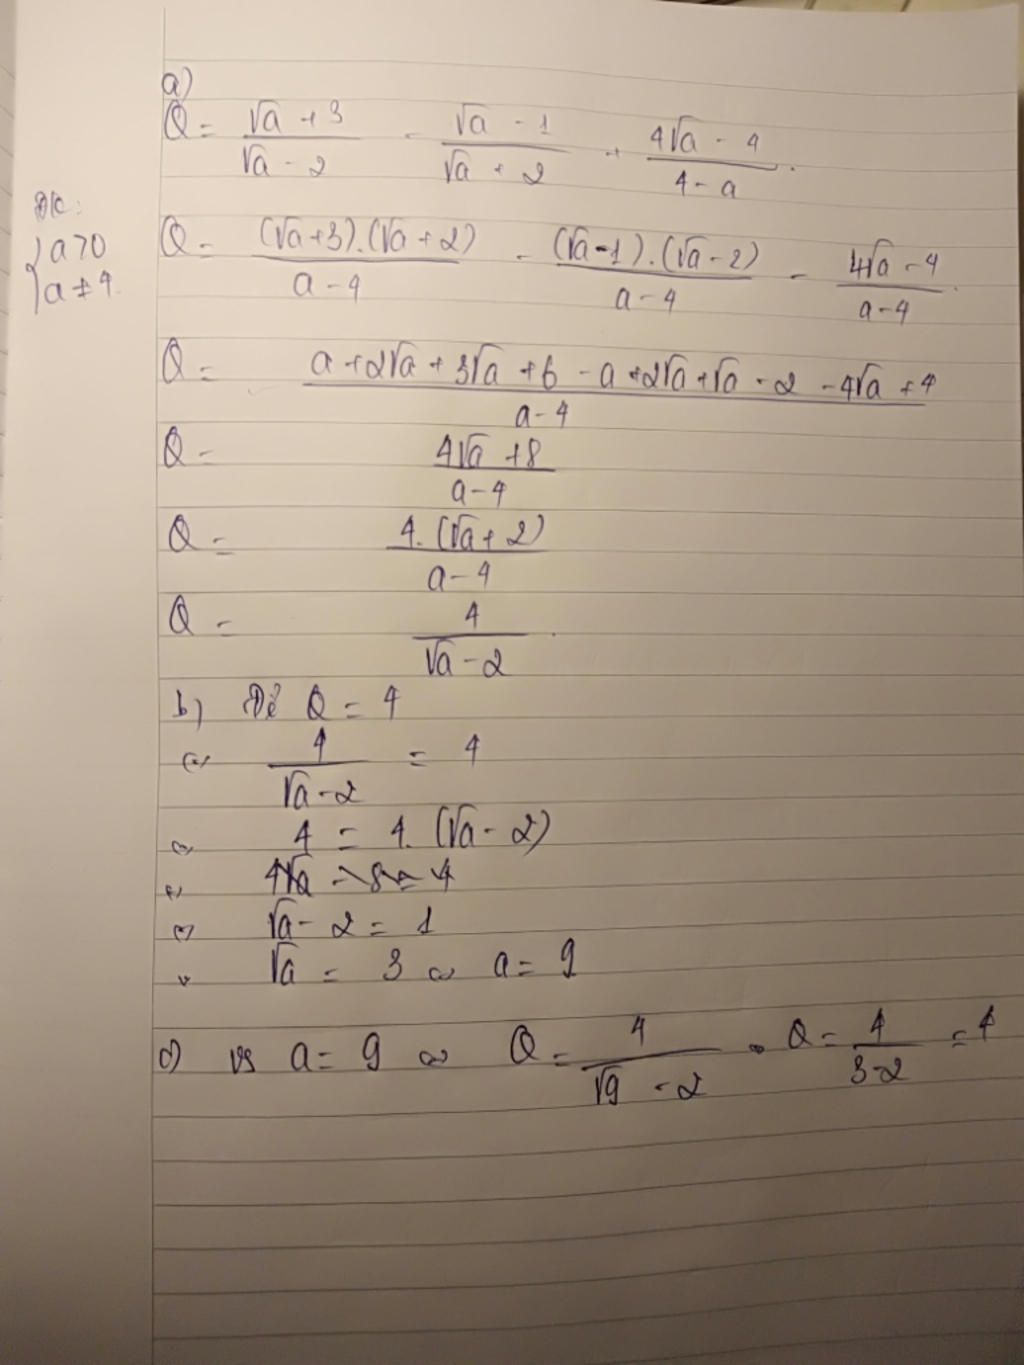 a)
Q = (√a + 3)/(√a - 2) - (√a - 1)/(√a + 2) + (4√a - 4)/(4 - a).
ĐK:
{ a > 0
{ a ≠ 4.
Q = ((√a + 3).(√a + 2))/(a - 4) - ((√a - 1).(√a - 2))/(a - 4) - (4√a - 4)/(a - 4).
Q = (a + 2√a + 3√a + 6 - a + 2√a + √a - 2 - 4√a + 4)/(a - 4)
Q = (4√a + 8)/(a - 4)
Q = (4.(√a + 2))/(a - 4)
Q = 4/(√a - 2).
b) Để Q = 4
<=> 4/(√a - 2) = 4
<=> 4 = 4.(√a - 2)
<=> 4√a - 8 = 4
<=> √a - 2 = 1
<=> √a = 3 <=> a = 9
c) vs a = 9 <=> Q = 4/(√9 - 2) . Q = 4/(3 - 2) = 4